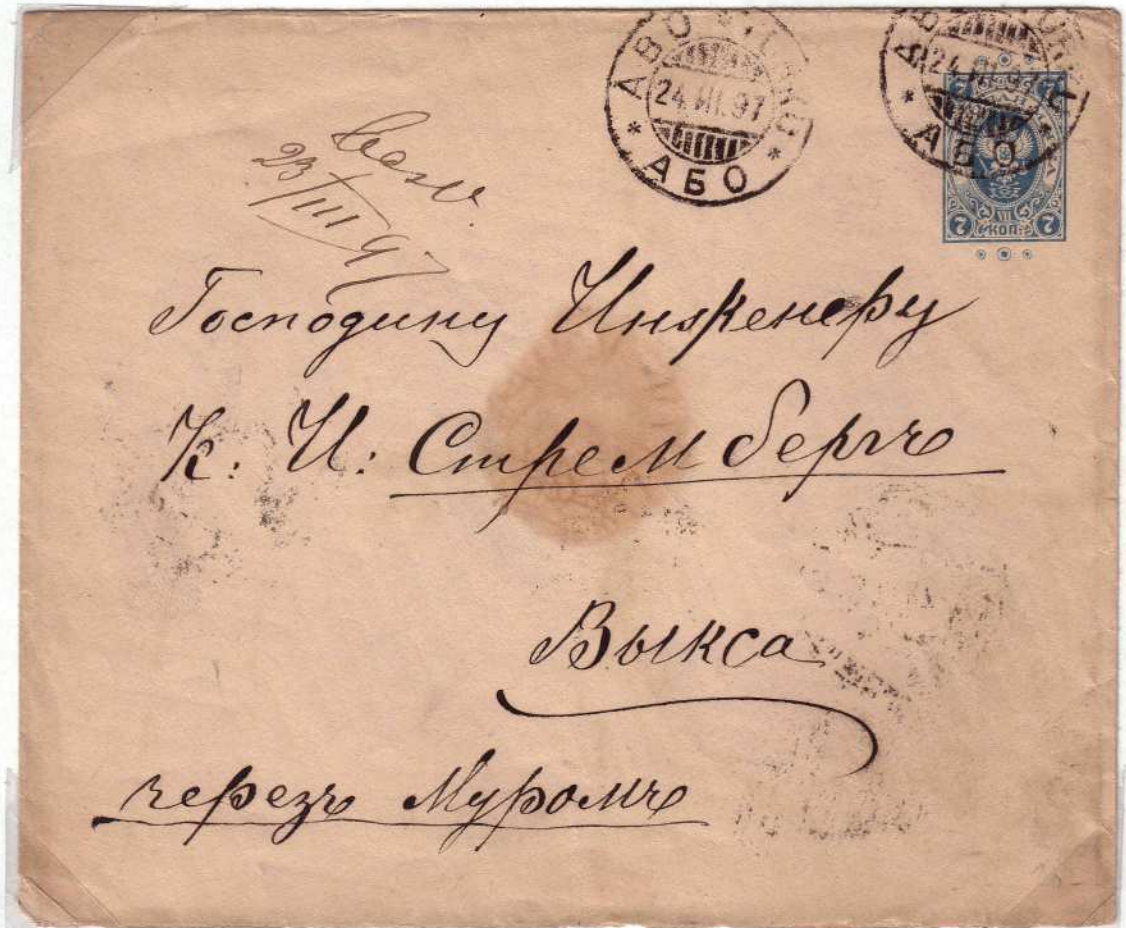 24.III.97
АБО
24.III.97
АБО
7 7
7 VII 7
КОП.
23/III 97
Господину Инженеру
К: И: Стрембергъ
Выкса
черезъ Муромъ